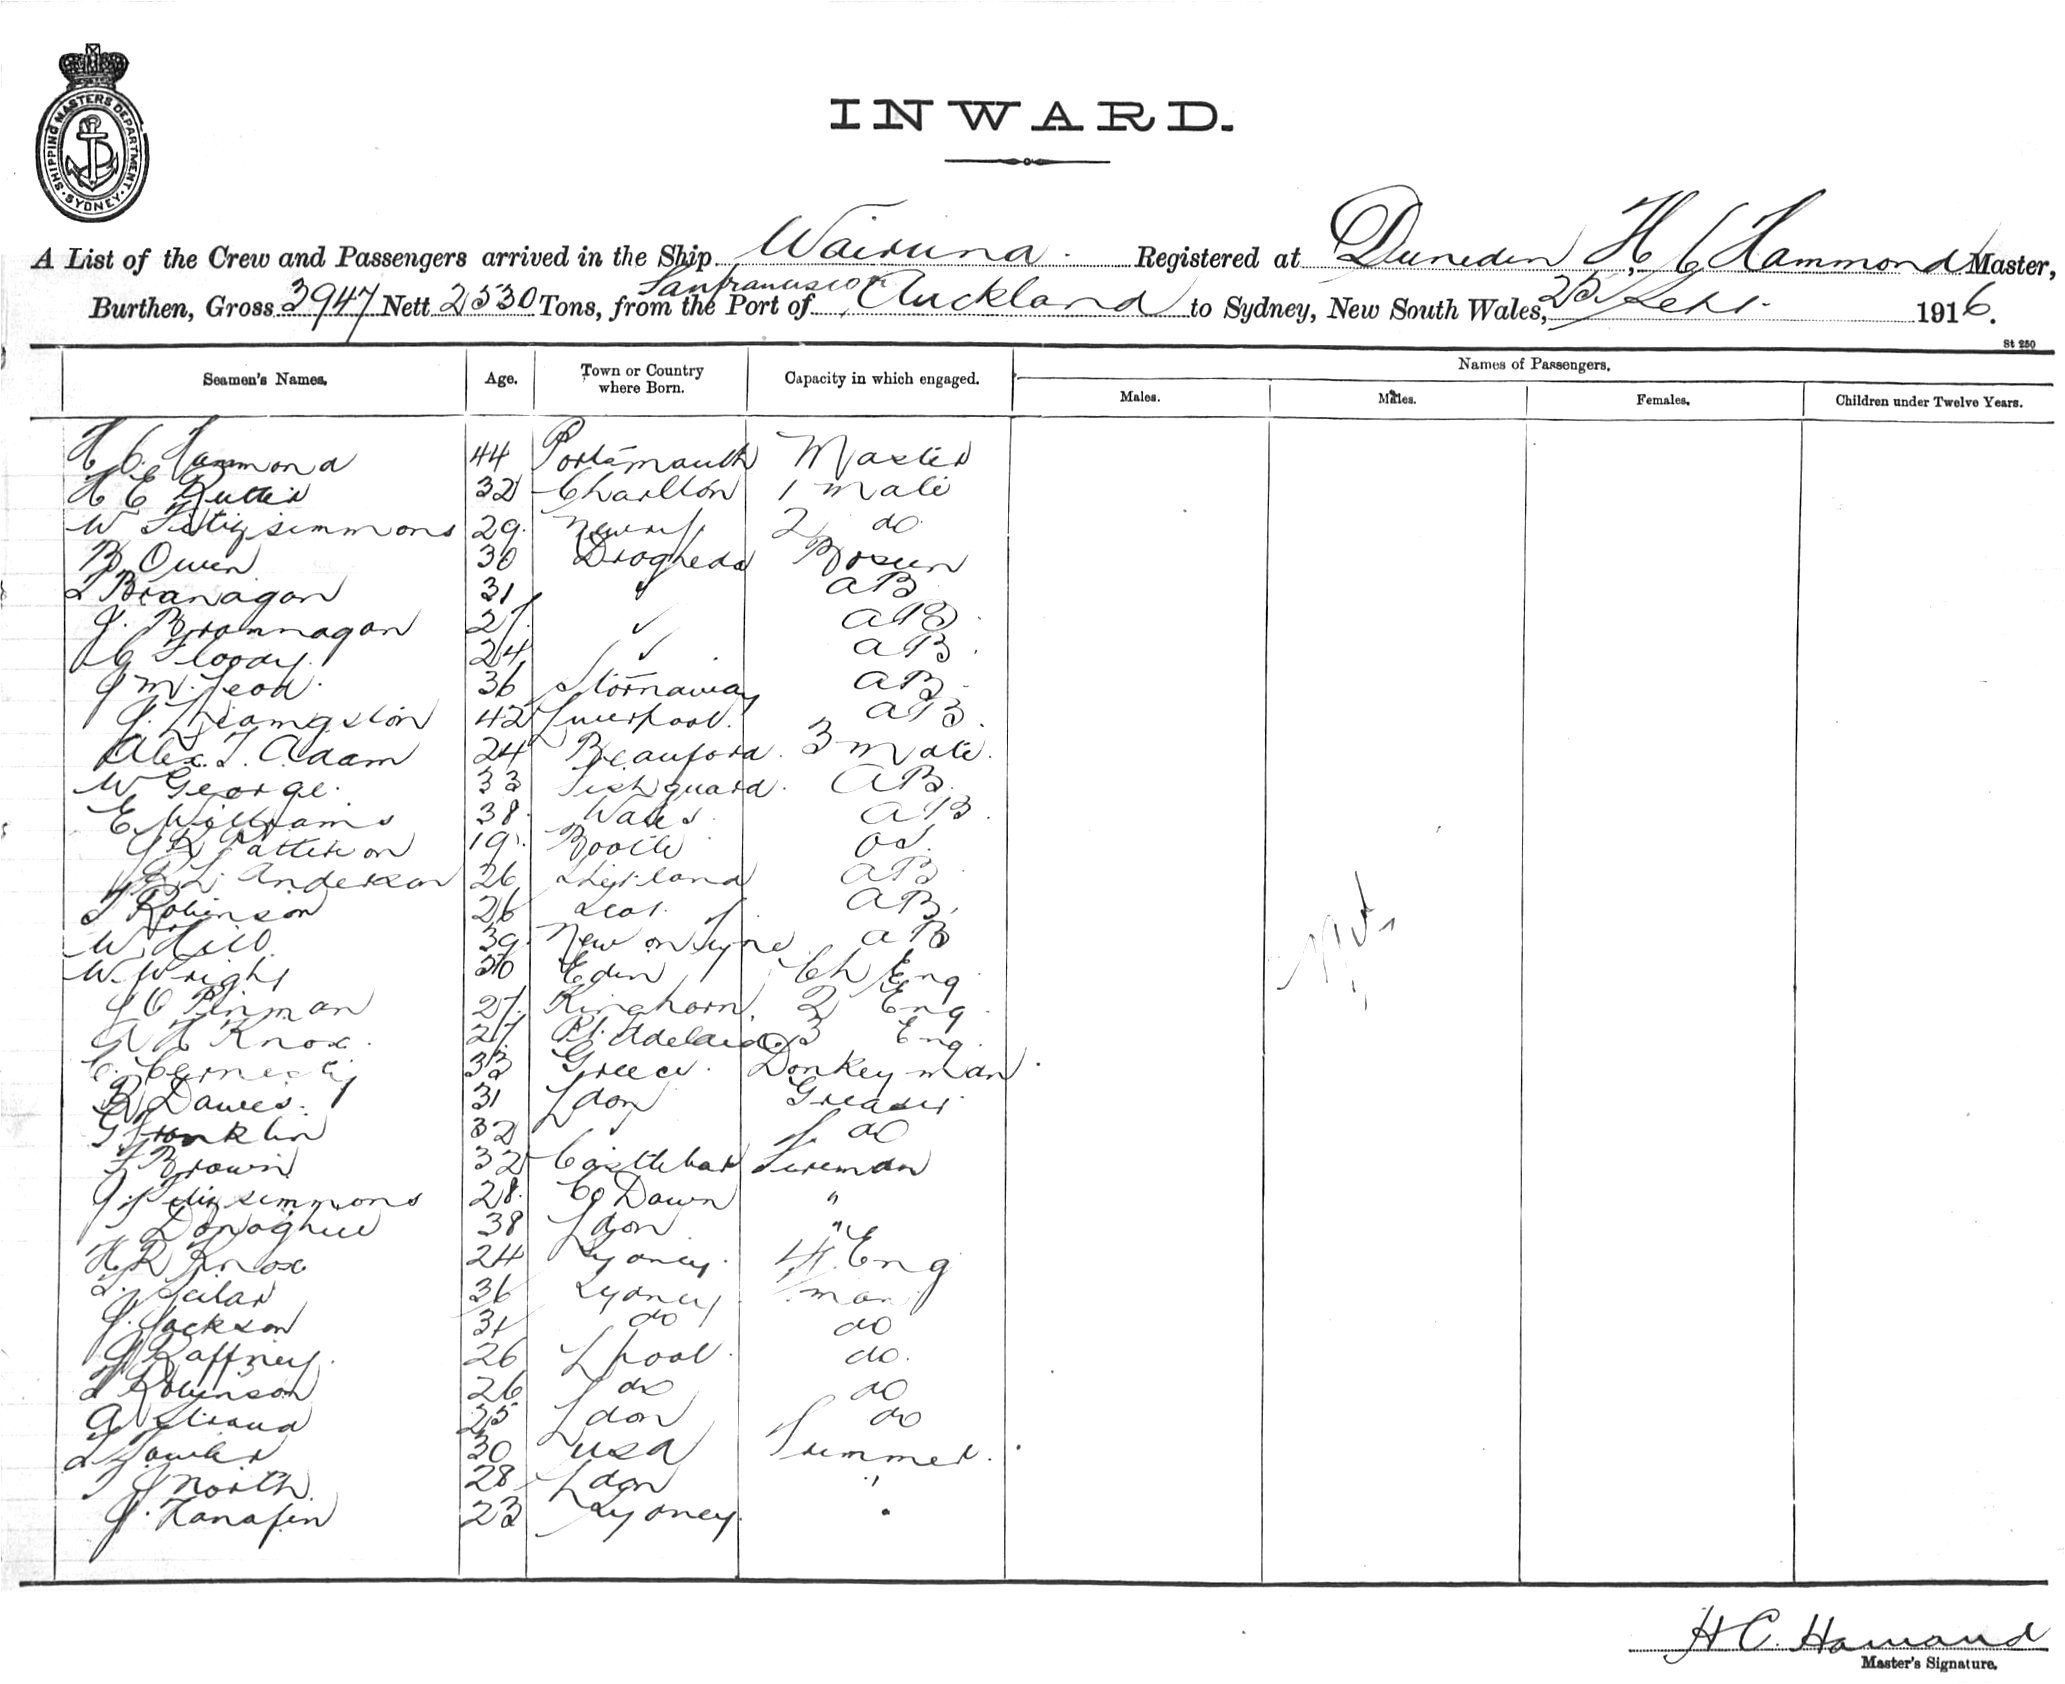 SHIPPING MASTERS DEPARTMENT
SYDNEY
INWARD.
A List of the Crew and Passengers arrived in the Ship Wairuna. Registered at Dunedin H, C Hammond Master,
Sanfrancisco
Burthen, Gross 3947 Nett 2530 Tons, from the Port of Auckland to Sydney, New South Wales, 25 Sept. 1916.
St 250
Seamen's Names. Age. Town or Country where Born. Capacity in which engaged. Names of Passengers.
Males. Males. Females. Children under Twelve Years.
H C. Hammond 44 Portsmouth Master
H E Rutter 32 Charlton 1 Mate
W Fitzsimmons 29. Newry 2 do
B Owen 30 Drogheda Bosun
Branagan 31 " AB
J. Brannagan 27. " AB.
Floody. 24 " AB.
J McLeod. 36 Stornaway AB.
J. Livingston 42 Liverpool. AB.
Alex. T. Adam 24 Beauford. 3 Mate.
W George. 33 Fishguard. AB.
E Williams 38. Wales. AB.
Patterson 19. Bootle OS.
Anderson 26 Shetland AB
T Robinson 26 Scot. AB.
W. Hill 39. New on Tyne AB
W. Wright 30 Edin Ch Eng
J C Penman 27. Kinghorn. 2 Eng.
A H Knox. 27. Pt. Adelaide. 3 Eng.
C. 33 Greece. Donkeyman.
R Davies. 31 Ldon Greaser
G Franklin 32 " do
F Brown 32 Castlebar Fireman
J. Fitzsimmons 28. Co Down "
Donaghue 38 Ldon "
H R Knox 24 Sydney. 4 Eng
36 Sydney F/man
J. Jackson 31 do do
J Gaffney. 26 Lpool. do.
T Robinson 26 do do
A Stroud 25 Ldon do
30 USA Trimmer.
T J North. 28 Ldon "
J. Hanafin 23 Sydney. "
Nil
H C. Hammond
Master's Signature.